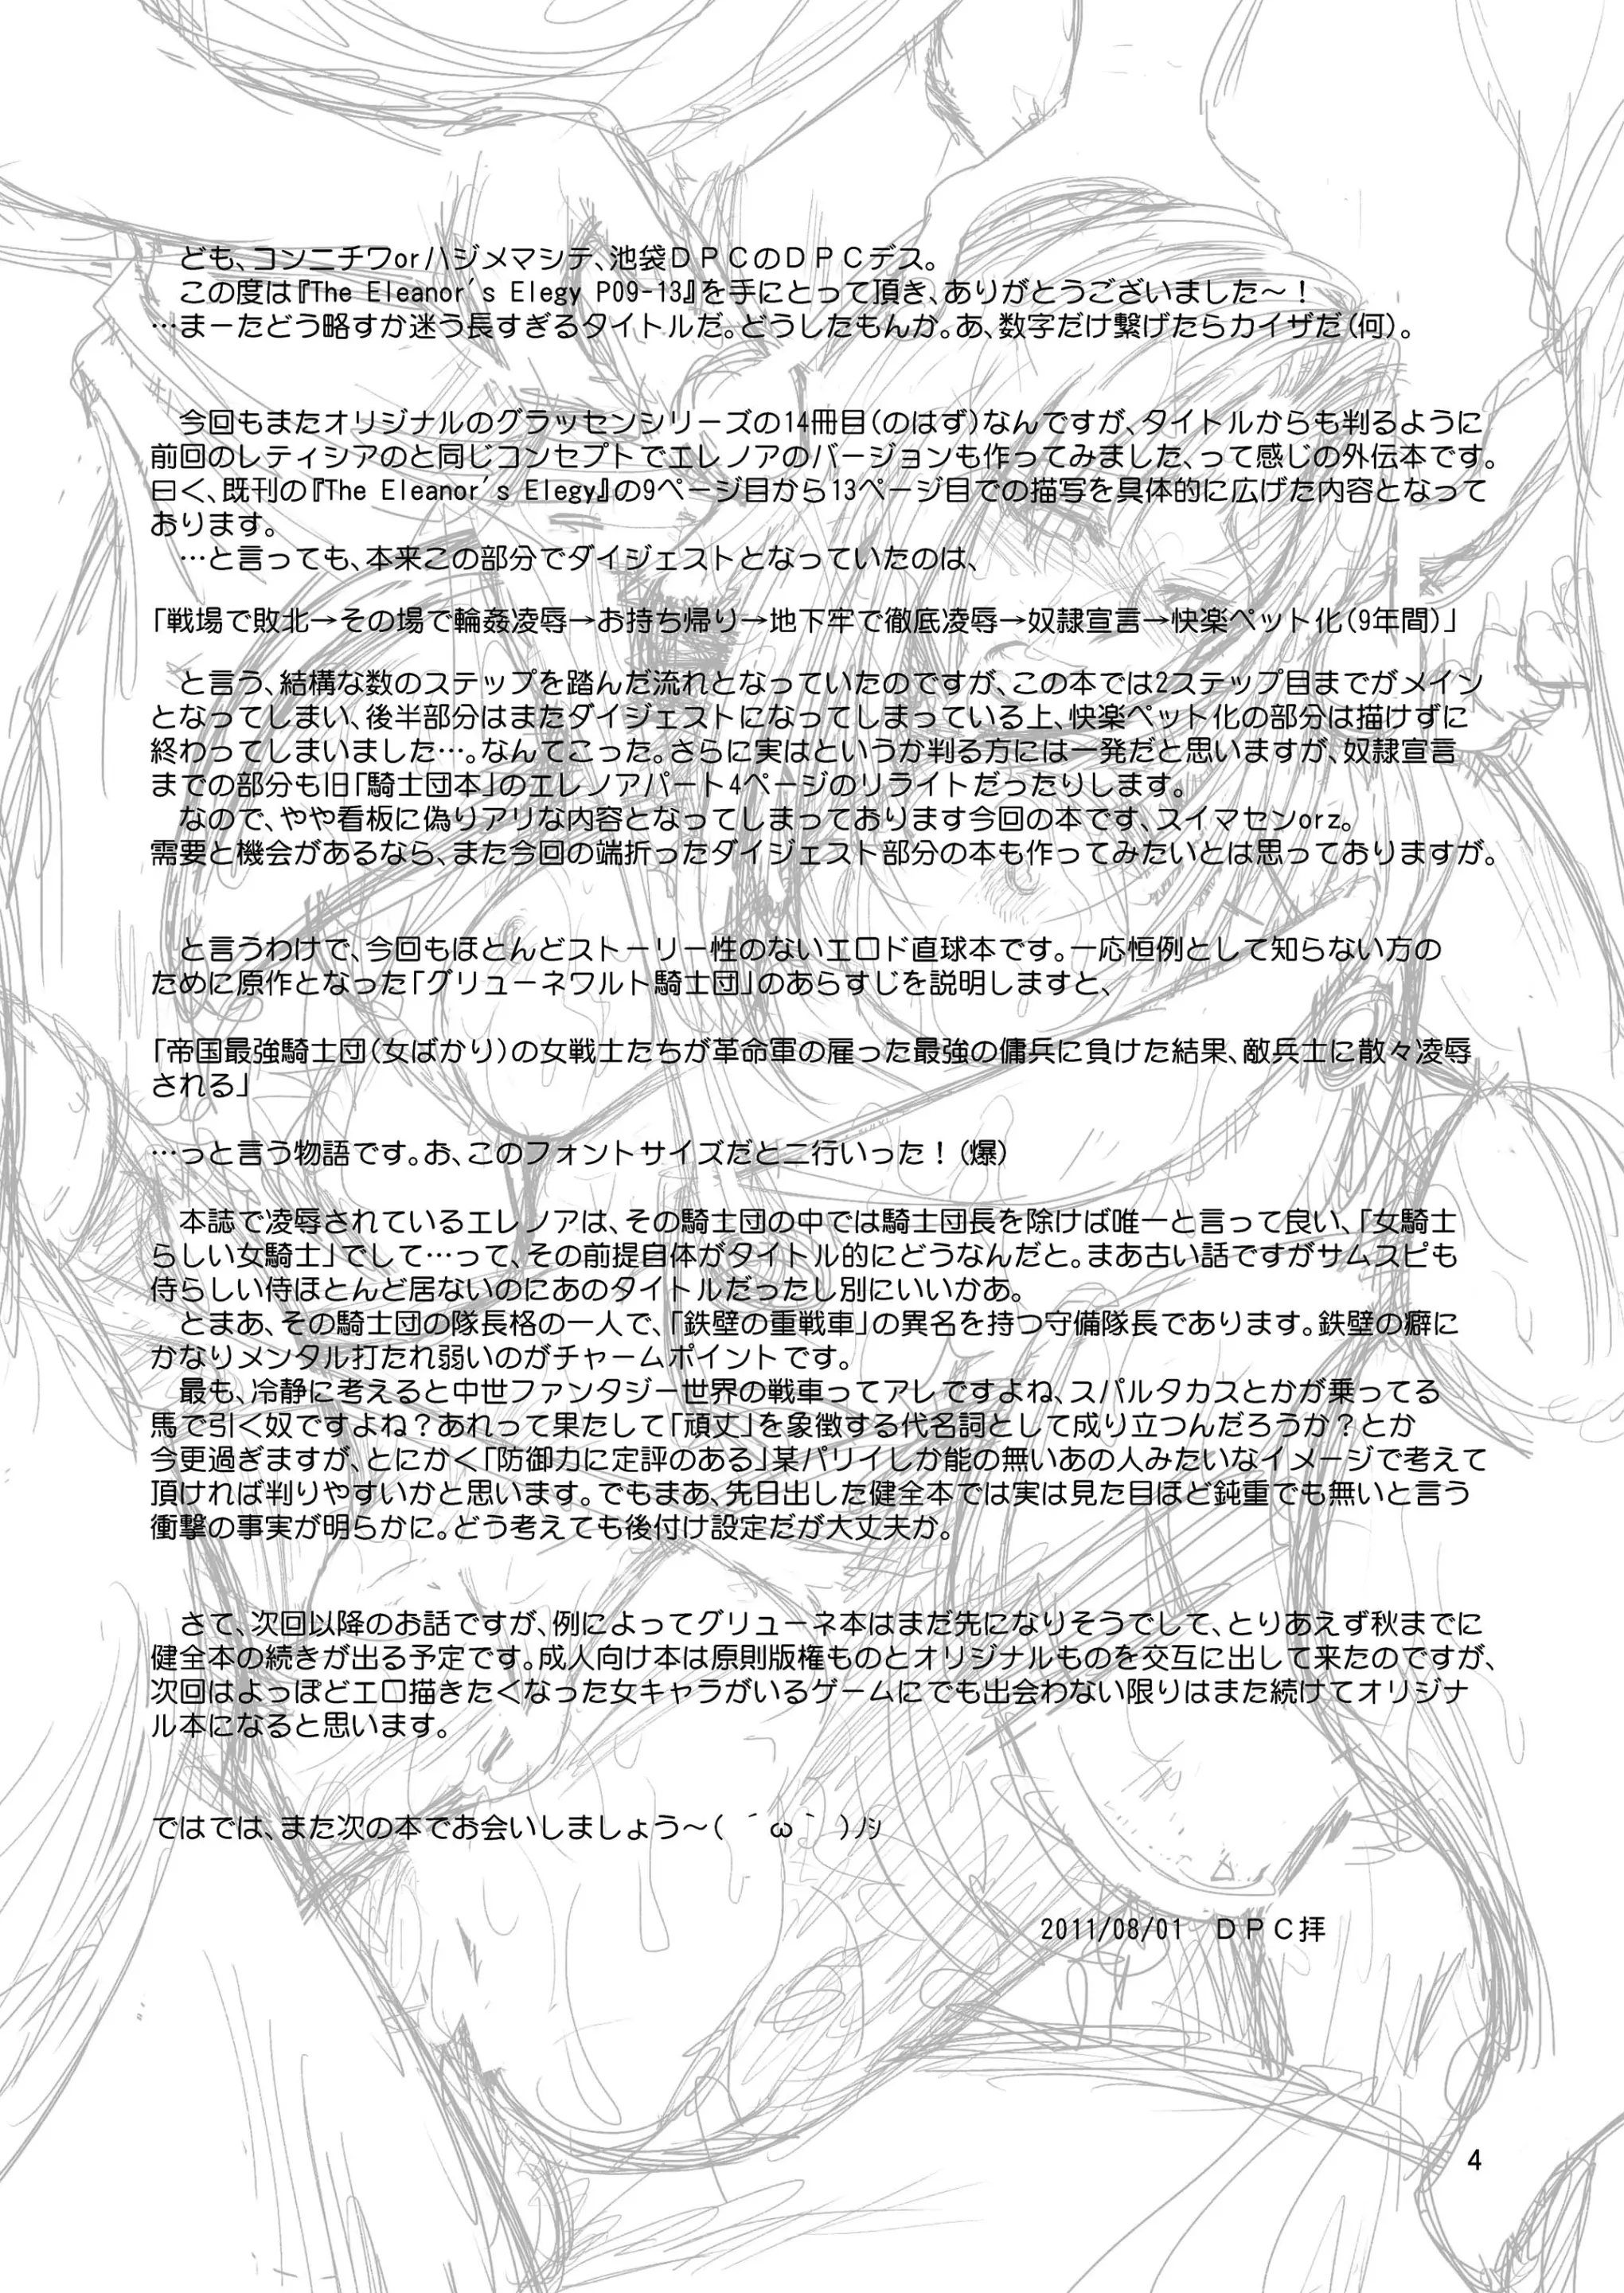 ども、コンニチワorハジメマシテ、池袋ＤＰＣのＤＰＣデス。
この度は『The Eleanor's Elegy P09-13』を手にとって頂き、ありがとうございました～！
…まーたどう略すか迷う長すぎるタイトルだ。どうしたもんか。あ、数字だけ繋げたらカイザだ(何)。
今回もまたオリジナルのグラッセンシリーズの14冊目(のはず)なんですが、タイトルからも判るように
前回のレティシアのと同じコンセプトでエレノアのバージョンも作ってみました、って感じの外伝本です。
曰く、既刊の『The Eleanor's Elegy』の9ページ目から13ページ目での描写を具体的に広げた内容となって
おります。
…と言っても、本来この部分でダイジェストとなっていたのは、
「戦場で敗北→その場で輪姦凌辱→お持ち帰り→地下牢で徹底凌辱→奴隷宣言→快楽ペット化(9年間)」
と言う、結構な数のステップを踏んだ流れとなっていたのですが、この本では2ステップ目までがメイン
となってしまい、後半部分はまたダイジェストになってしまっている上、快楽ペット化の部分は描けずに
終わってしまいました…。なんてこった。さらに実はというか判る方には一発だと思いますが、奴隷宣言
までの部分も旧「騎士団本」のエレノアパート4ページのリライトだったりします。
なので、やや看板に偽りアリな内容となってしまっております今回の本です、スイマセンorz。
需要と機会があるなら、また今回の端折ったダイジェスト部分の本も作ってみたいとは思っておりますが。
と言うわけで、今回もほとんどストーリー性のないエロド直球本です。一応恒例として知らない方の
ために原作となった「グリューネワルト騎士団」のあらすじを説明しますと、
「帝国最強騎士団(女ばかり)の女戦士たちが革命軍の雇った最強の傭兵に負けた結果、敵兵士に散々凌辱
される」
…っと言う物語です。お、このフォントサイズだと二行いった！(爆)
本誌で凌辱されているエレノアは、その騎士団の中では騎士団長を除けば唯一と言って良い、「女騎士
らしい女騎士」でして…って、その前提自体がタイトル的にどうなんだと。まあ古い話ですがサムスピも
侍らしい侍ほとんど居ないのにあのタイトルだったし別にいいかあ。
とまあ、その騎士団の隊長格の一人で、「鉄壁の重戦車」の異名を持つ守備隊長であります。鉄壁の癖に
かなりメンタル打たれ弱いのがチャームポイントです。
最も、冷静に考えると中世ファンタジー世界の戦車ってアレですよね、スパルタカスとかが乗ってる
馬で引く奴ですよね？あれって果たして「頑丈」を象徴する代名詞として成り立つんだろうか？とか
今更過ぎますが、とにかく「防御力に定評のある」某パリイしか能の無いあの人みたいなイメージで考えて
頂ければ判りやすいかと思います。でもまあ、先日出した健全本では実は見た目ほど鈍重でも無いと言う
衝撃の事実が明らかに。どう考えても後付け設定だが大丈夫か。
さて、次回以降のお話ですが、例によってグリューネ本はまだ先になりそうでして、とりあえず秋までに
健全本の続きが出る予定です。成人向け本は原則版権ものとオリジナルものを交互に出して来たのですが、
次回はよっぽどエロ描きたくなった女キャラがいるゲームにでも出会わない限りはまた続けてオリジナ
ル本になると思います。
ではでは、また次の本でお会いしましょう～( ´ω｀)ﾉｼ
2011/08/01　ＤＰＣ拝
4